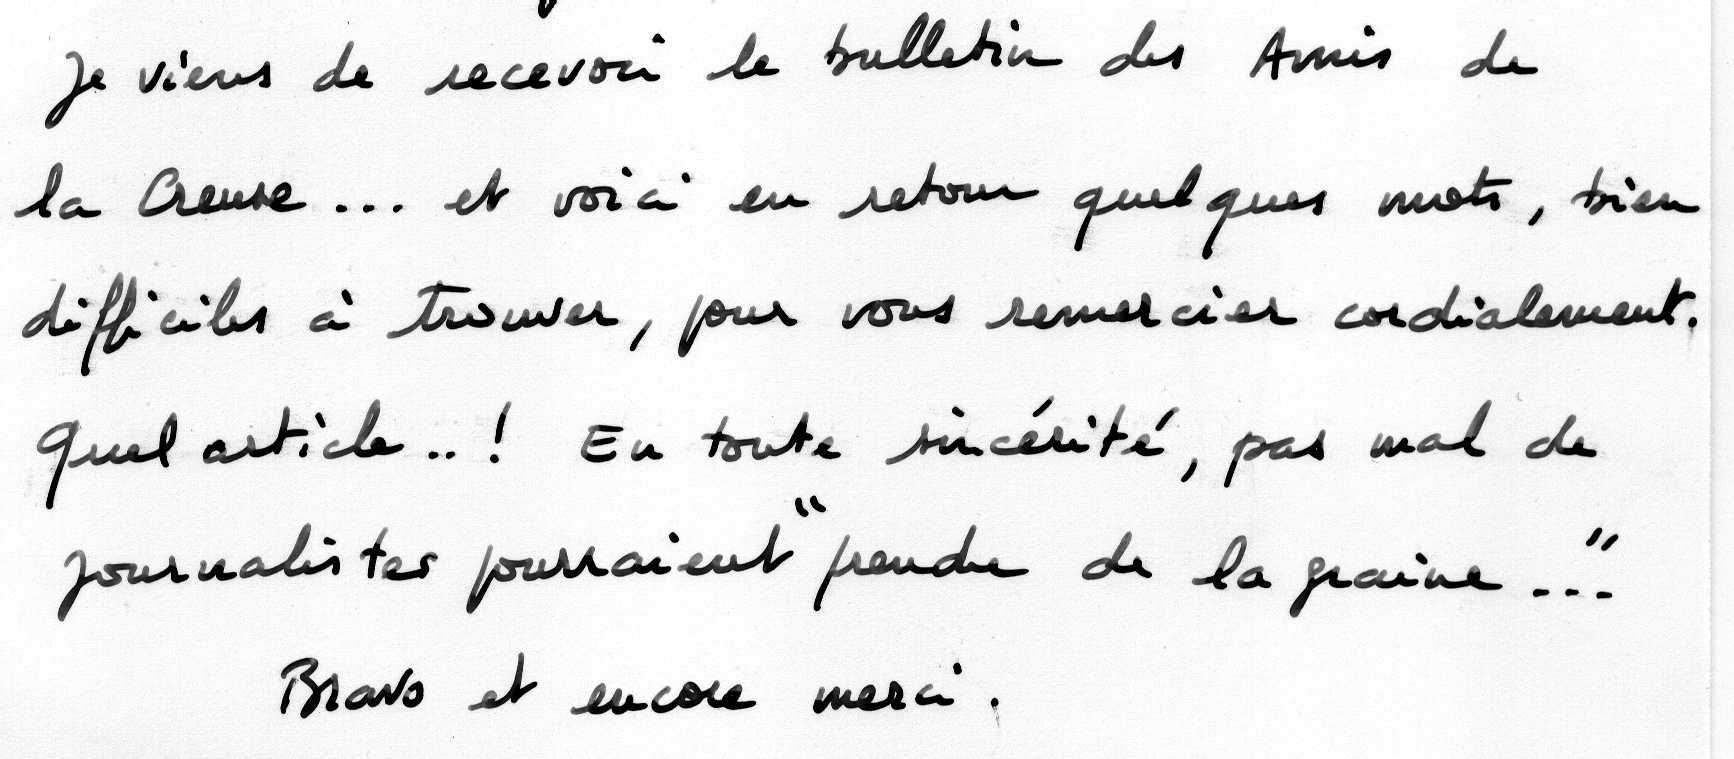 Je viens de recevoir le bulletin des Amis de
la Creuse... et voici en retour quelques mots, bien
difficiles à trouver, pour vous remercier cordialement.
Quel article..! En toute sincérité, pas mal de
journalistes pourraient "prendre de la graine..."
Bravo et encore merci.